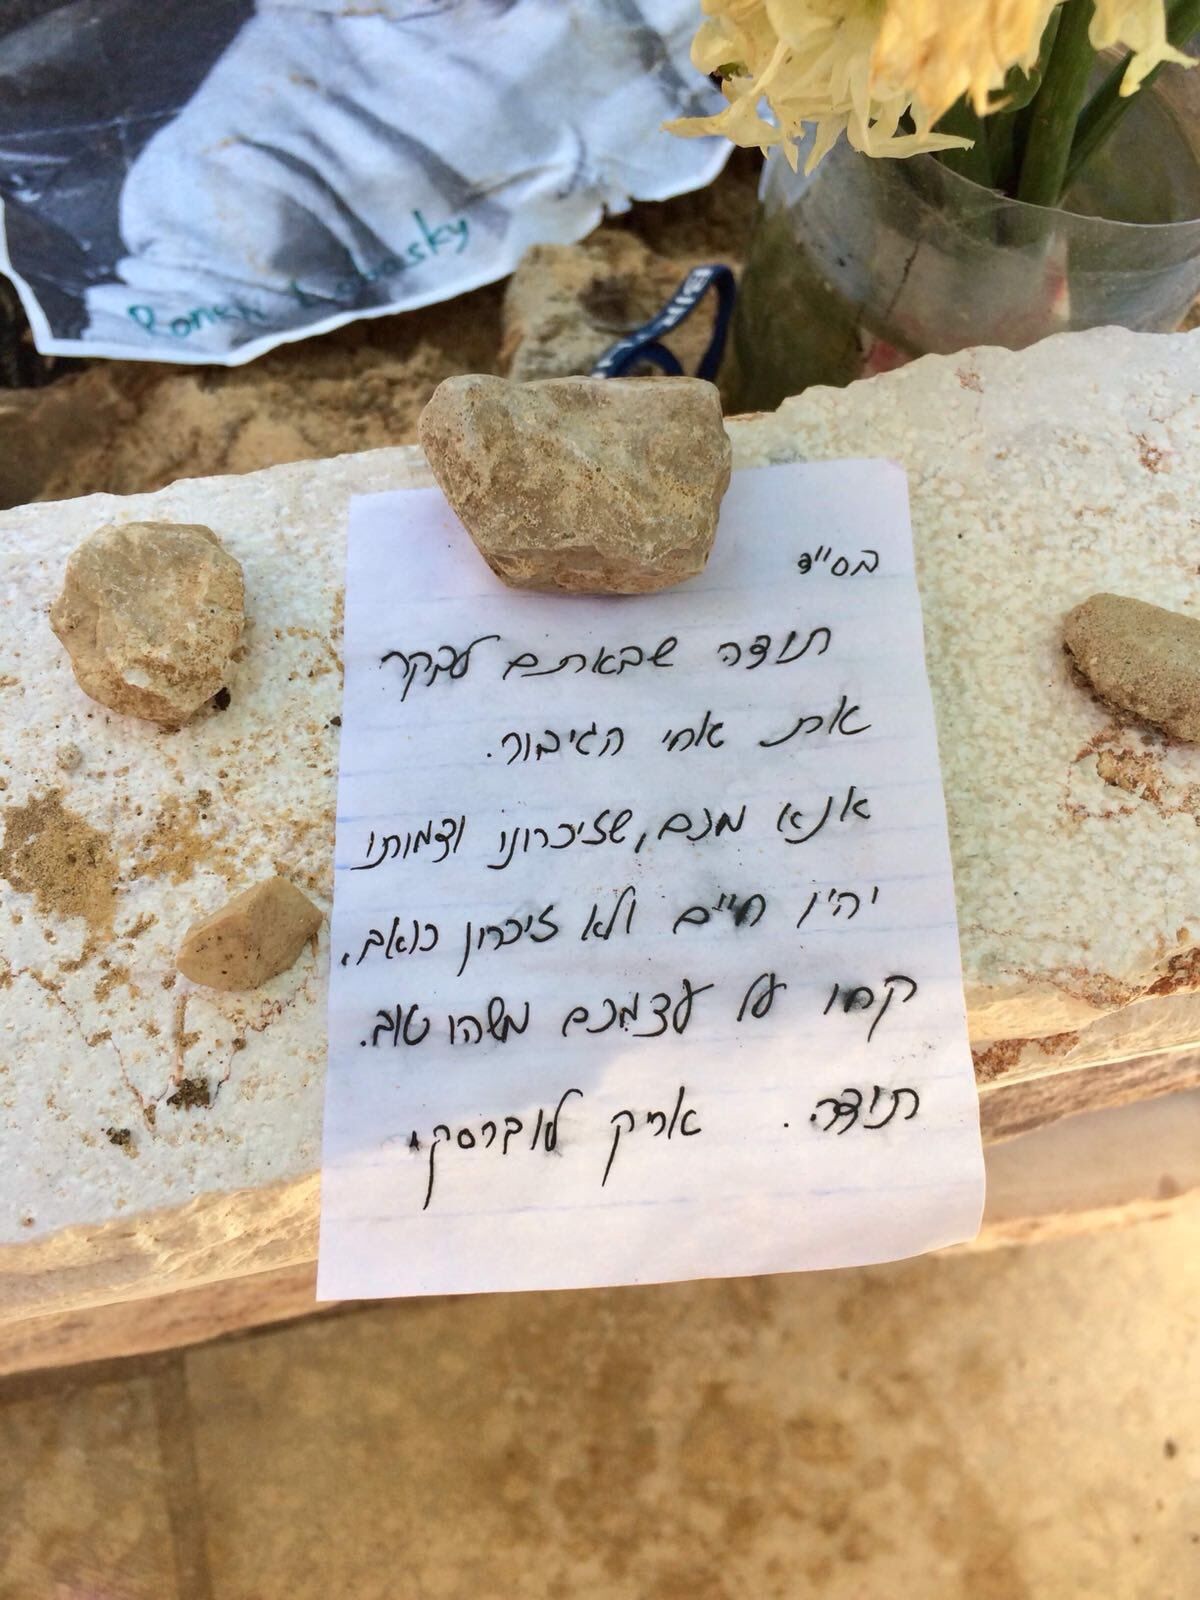 Ronen Lubarsky
BIR
בס"ד
תודה שבאתם לבקר
את אחי הגיבור.
אנא מכם, שזיכרונו וצמותו
יהיו חיים ולא זיכרון כואב.
קחו על עצמכם משהו טוב.
תודה. אריק לוברסקי